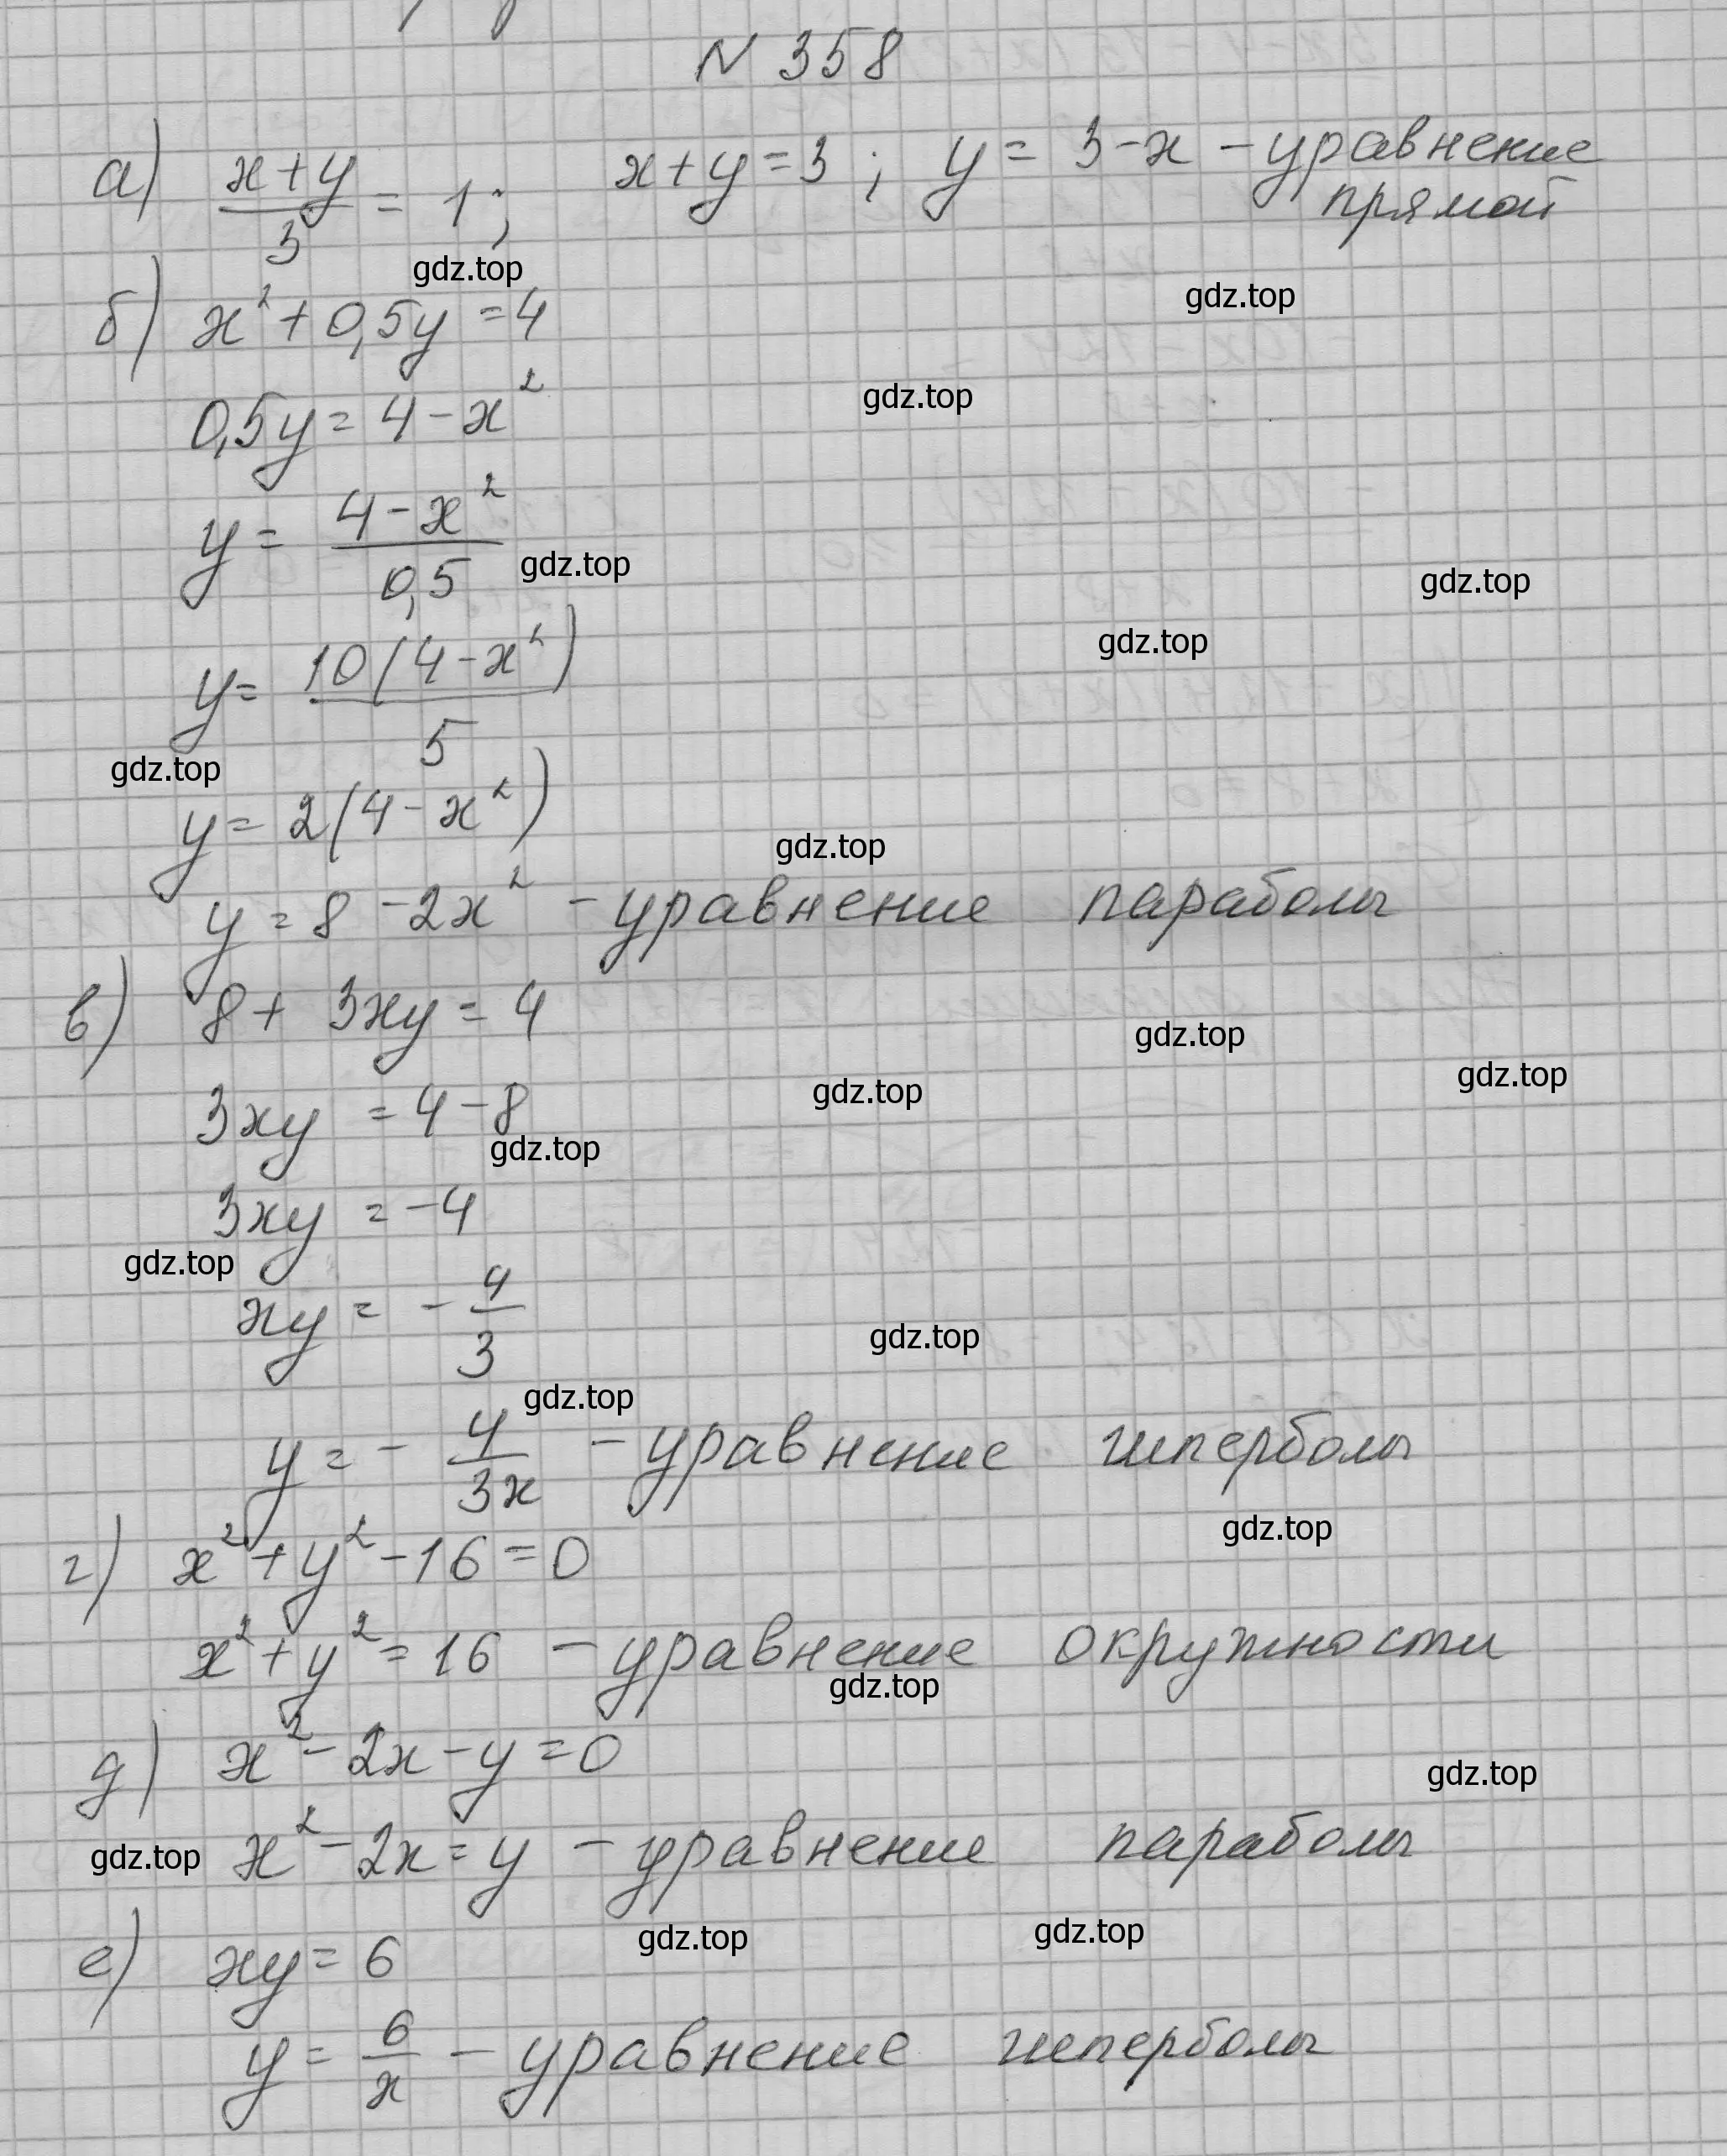 N 358
а) (x+y)/3 = 1; x+y=3; y= 3-x - уравнение
прямой
gdz.top
gdz.top
б) x²+0,5y=4
gdz.top
0,5y=4-x²
y= (4-x²)/0,5
gdz.top
gdz.top
gdz.top
y= 10(4-x²)/5
gdz.top
y=2(4-x²)
gdz.top
y=8-2x² - уравнение параболы
в) 8+3xy=4
gdz.top
gdz.top
gdz.top
3xy=4-8
gdz.top
3xy=-4
gdz.top
xy=-4/3
gdz.top
gdz.top
y=-4/3x - уравнение гиперболы
gdz.top
г) x²+y²-16=0
x²+y²=16 - уравнение окружности
gdz.top
д) x²-2x-y=0
gdz.top
gdz.top x²-2x=y - уравнение параболы
gdz.top
gdz.top
е) xy=6
y=6/x - уравнение гиперболы